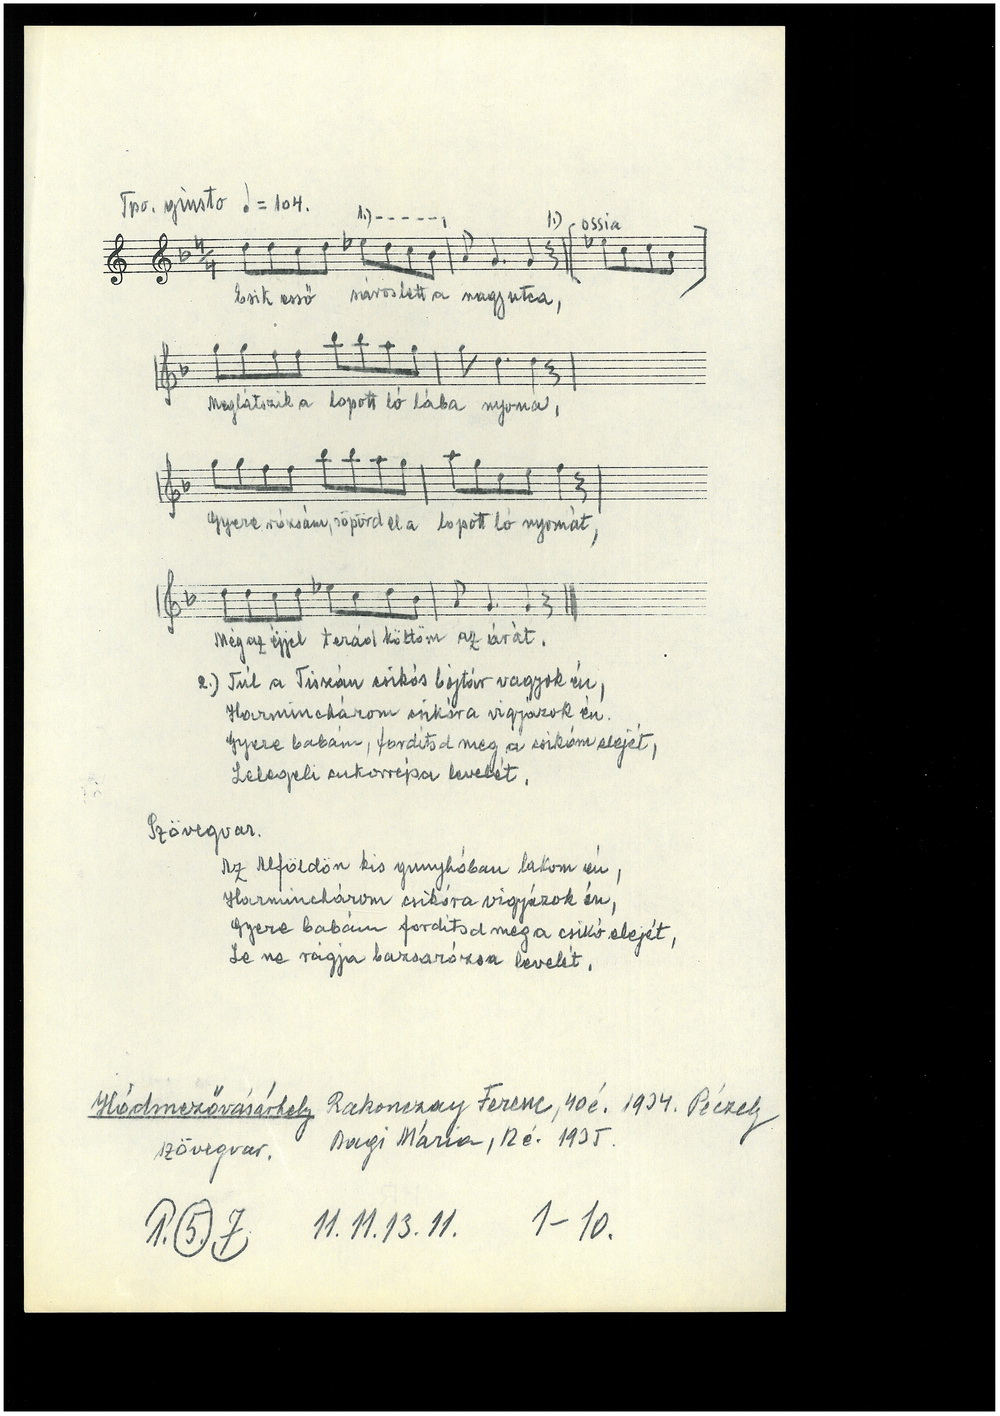 Tpo. giusto ♩ = 104.
1.) - - - - -
1.) ossia
Esik eső sáros lett a nagy utca,
Meglátszik a lopott ló lába nyoma,
Gyere rózsám, söpörd el a lopott ló nyomát,
Még az éjjel terád költöm az árát.
2.) Túl a Tiszán csikós bojtár vagyok én,
Harminchárom csikóra vigyázok én.
Gyere babám, fordítsd meg a csikóm elejét,
Lelegeli cukorrépa levelét.
Szövegvar.
Az Alföldön kis gunyhóban lakom én,
Harminchárom csikóra vigyázok én,
Gyere babám fordítsd meg a csikó elejét,
Le ne rágja bazsarózsa levelét.
Hódmezővásárhely Rakonczay Ferenc, 40 é. 1934. Péczely
szövegvar. Bagi Mária, 12 é. 1935.
1. 5. 7 11. 11. 13. 11. 1-10.